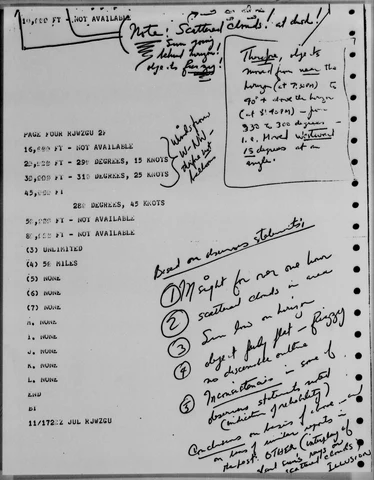 10,000 FT - NOT AVAILABLE
Note: Scattered clouds! at dusk!
Sun going
behind horizon!
objects fuzzy!
Therefore, objects
moved from near the
horizon (at 7:20PM) to
90° above the horizon
(at 8:40PM) - from
330 to 300 degrees -
i.e. moved Westward
15 degrees at an
angle.
PAGE FOUR RJWZGU 2
16,000 FT - NOT AVAILABLE
20,000 FT - 290 DEGREES, 15 KNOTS
30,000 FT - 310 DEGREES, 25 KNOTS
45,000 FT
280 DEGREES, 45 KNOTS
50,000 FT - NOT AVAILABLE
80,000 FT - NOT AVAILABLE
(3) UNLIMITED
(4) 50 MILES
(5) NONE
(6) NONE
(7) NONE
H. NONE
I. NONE
J. NONE
K. NONE
L. NONE
END
BT
11/1722Z JUL RJWZGU
Winds from
W-NW-
Based on observers statements;
1 In sight for over one hour
2 scattered clouds in area
3 Sun low on horizon
4 object fully flat - fuzzy
no discernable outline
5 Inconsistencies in some of
observers statements noted
(indication of reliability)
Conclusions on basis of above and
on basis of similar reports in
the past: OTHER (interplay of
sun's rays on
scattered clouds)
ILLUSION